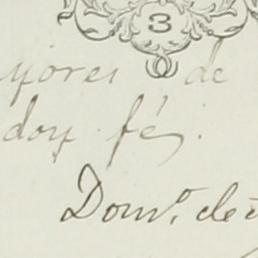 3
yores de
doy fé,
Dom.º de